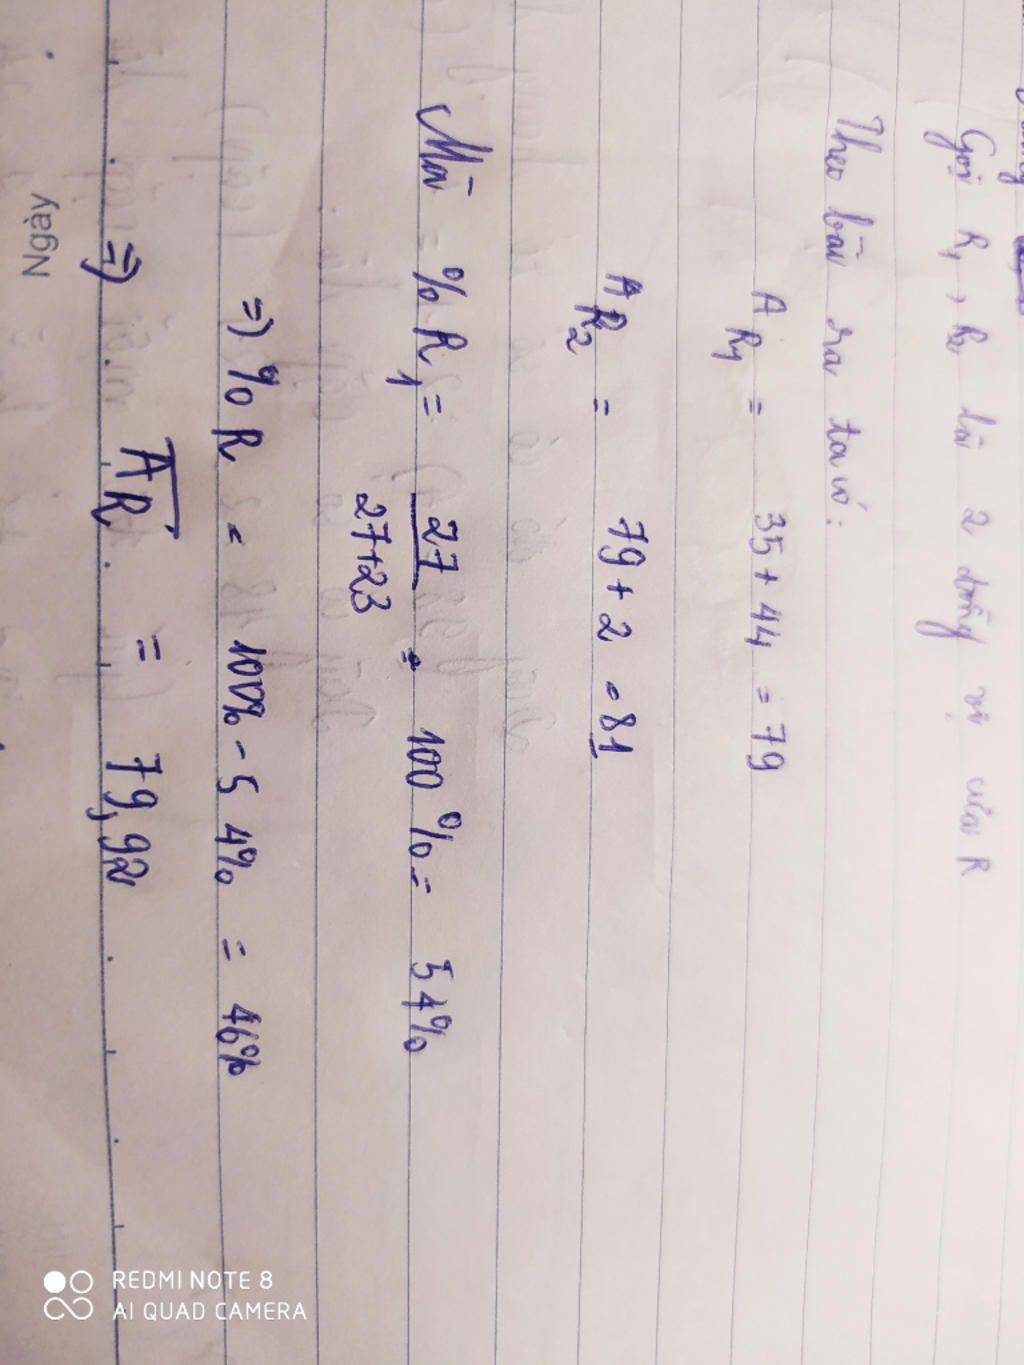 Gọi R1, R2 là 2 đồng vị của R
Theo bài ra ta có:
A R1 = 35 + 44 = 79
A R2 = 79 + 2 = 81
Mà % R1 = 27 / 27+23 . 100% = 54%
=) % R = 100% - 54% = 46%
=) A̅R̅ = 79,92
Ngày
REDMI NOTE 8
AI QUAD CAMERA